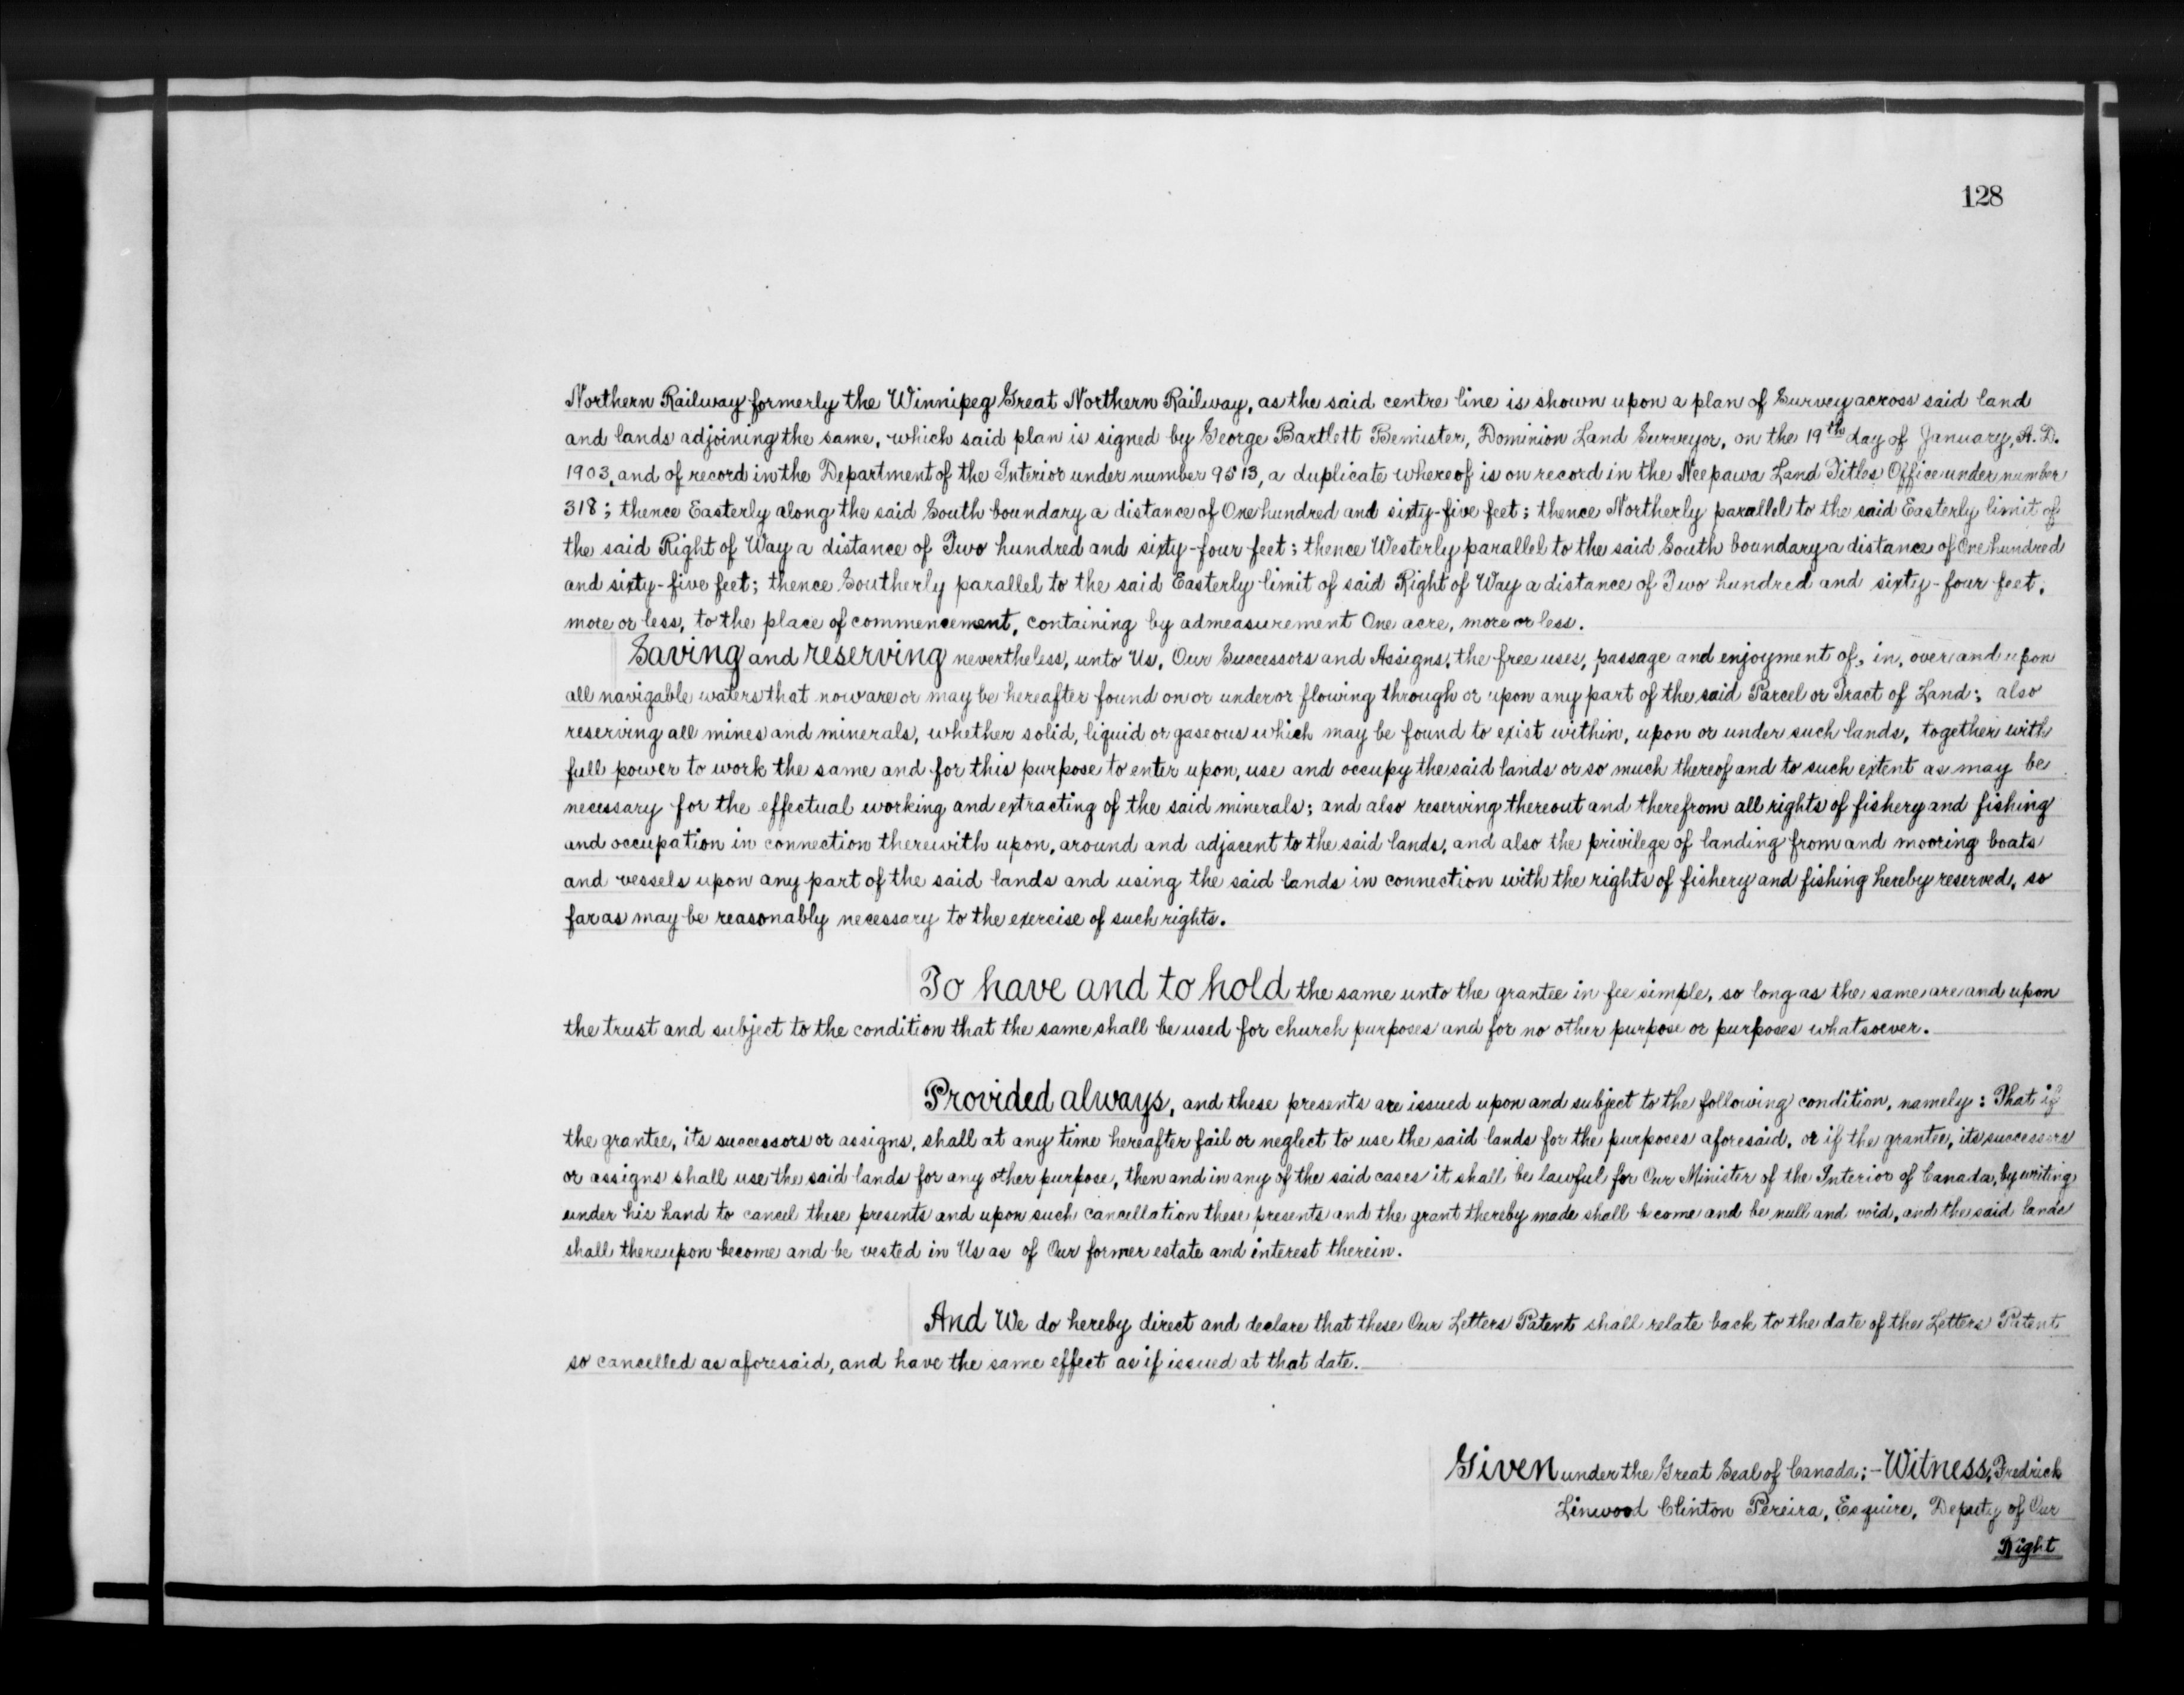 128
Northern Railway formerly the Winnipeg Great Northern Railway, as the said centre line is shown upon a plan of Survey across said land
and lands adjoining the same, which said plan is signed by George Bartlett Bemister, Dominion Land Surveyor, on the 19th day of January, A.D.
1903, and of record in the Department of the Interior under number 9513, a duplicate whereof is on record in the Neepawa Land Titles Office under number
318; thence Easterly along the said South boundary a distance of One hundred and sixty-five feet; thence Northerly parallel to the said Easterly limit of
the said Right of Way a distance of Two hundred and sixty-four feet; thence Westerly parallel to the said South boundary a distance of One hundred
and sixty-five feet; thence Southerly parallel to the said Easterly limit of said Right of Way a distance of Two hundred and sixty-four feet,
more or less, to the place of commencement, containing by admeasurement One acre, more or less.
Saving and reserving nevertheless, unto Us, Our Successors and Assigns, the free uses, passage and enjoyment of, in, over and upon
all navigable waters that now are or may be hereafter found on or under or flowing through or upon any part of the said Parcel or Tract of Land; also
reserving all mines and minerals, whether solid, liquid or gaseous which may be found to exist within, upon or under such lands, together with
full power to work the same and for this purpose to enter upon, use and occupy the said lands or so much thereof and to such extent as may be
necessary for the effectual working and extracting of the said minerals; and also reserving thereout and therefrom all rights of fishery and fishing
and occupation in connection therewith upon, around and adjacent to the said lands, and also the privilege of landing from and mooring boats
and vessels upon any part of the said lands and using the said lands in connection with the rights of fishery and fishing hereby reserved, so
far as may be reasonably necessary to the exercise of such rights.
To have and to hold the same unto the grantee in fee simple, so long as the same are and upon
the trust and subject to the condition that the same shall be used for church purposes and for no other purpose or purposes whatsoever.
Provided always, and these presents are issued upon and subject to the following condition, namely: That if
the grantee, its successors or assigns, shall at any time hereafter fail or neglect to use the said lands for the purposes aforesaid, or if the grantee, its successors
or assigns shall use the said lands for any other purpose, then and in any of the said cases it shall be lawful for Our Minister of the Interior of Canada, by writing
under his hand to cancel these presents and upon such cancellation these presents and the grant thereby made shall become and be null and void, and the said lands
shall thereupon become and be vested in Us as of Our former estate and interest therein.
And We do hereby direct and declare that these Our Letters Patent shall relate back to the date of the Letters Patent
so cancelled as aforesaid, and have the same effect as if issued at that date.
Given under the Great Seal of Canada:- Witness, Fredrick
Linwood Clinton Pereira, Esquire, Deputy of Our
Right